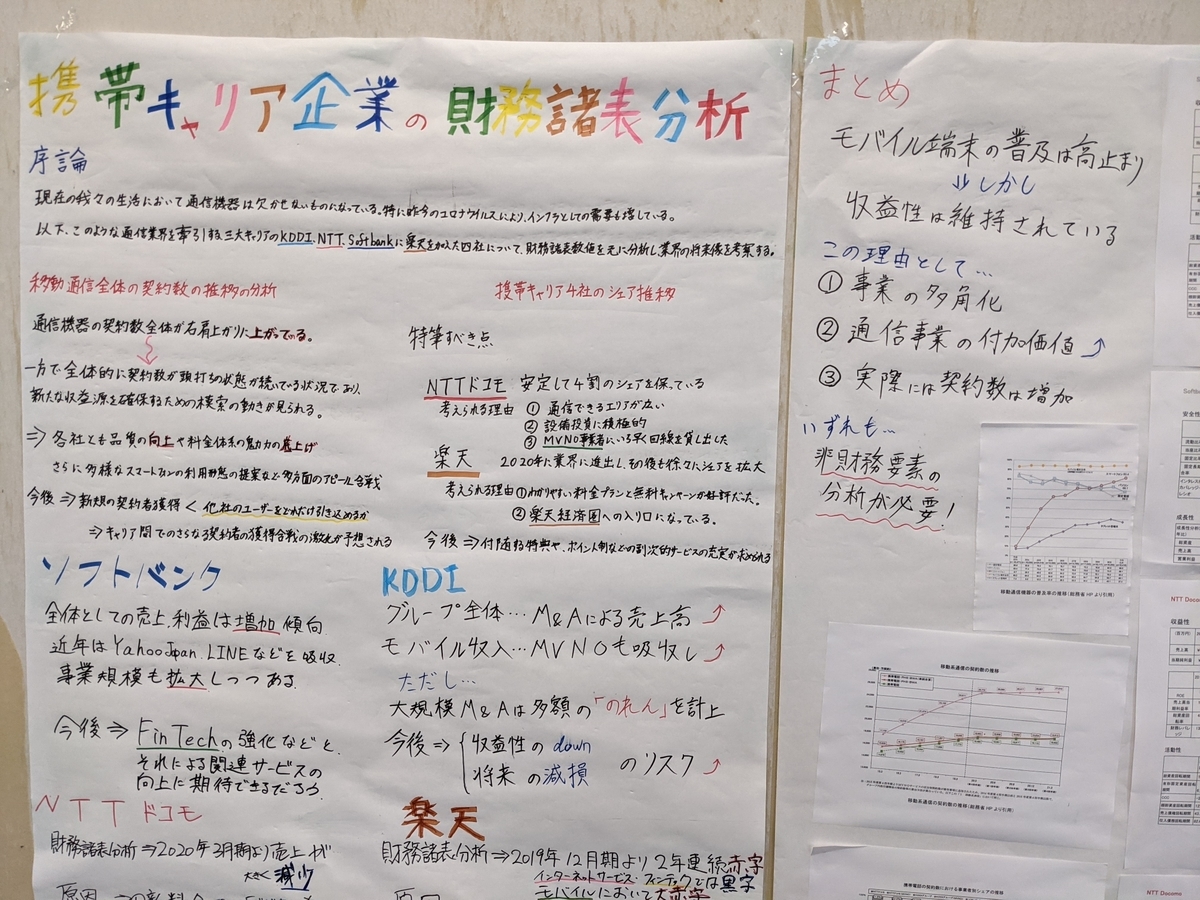 携帯キャリア企業の財務諸表分析
序論
現在の我々の生活において通信機器は欠かせないものになっている。特に昨今のコロナウイルスにより、インフラとしての需要も増している。
以下、このような通信業界を牽引する三大キャリアのKDDI、NTT、Softbankに楽天を加えた四社について、財務諸表数値を元に分析し業界の将来像を考察する。
移動通信全体の契約数の推移の分析
通信機器の契約数全体が右肩上がりに上がっている。
一方で全体的に契約数が頭打ちの状態が続いている状況であり、
新たな収益源を確保するための模索の動きが見られる。
⇒ 各社とも品質の向上や料金体系の魅力の底上げ
さらに多様なスマートフォンの利用形態の提案など多方面のアピール合戦
今後 ⇒ 新規の契約者獲得 < 他社のユーザーをどれだけ引き込めるか
⇒ キャリア間でのさらなる契約者の獲得合戦の激化が予想される
携帯キャリア4社のシェア推移
特筆すべき点
NTTドコモ 安定して4割のシェアを保っている
考えられる理由 ① 通信できるエリアが広い
② 設備投資に積極的
③ MVNO事業者にいち早く回線を貸し出した
楽天 2020年に業界に進出し、その後も徐々にシェアを拡大
考えられる理由 ①わかりやすい料金プランと無料キャンペーンが好評だった。
② 楽天経済圏への入り口になっている。
今後 ⇒ 付随する特典や、ポイント制などの副次的サービスの充実が求められる
ソフトバンク
全体としての売上、利益は増加傾向
近年はYahooJapan、LINEなどを吸収
事業規模も拡大しつつある
今後 ⇒ FinTechの強化などと、
それによる関連サービスの
向上に期待できるだろう
KDDI
グループ全体…M&Aによる売上高↗
モバイル収入…MVNOも吸収し↗
ただし…
大規模M&Aは多額の「のれん」を計上
今後⇒ 収益性のdown
将来の減損
のリスク↗
NTTドコモ
財務諸表分析⇒2020年3月期より売上が
大きく減少
楽天
財務諸表分析⇒2019年12月期より2年連続赤字
インターネットサービス・フィンテックでは黒字
モバイルにおいて大赤字
まとめ
モバイル端末の普及は高止まり
↓しかし
収益性は維持されている
この理由として…
① 事業の多角化
② 通信事業の付加価値↗
③ 実際には契約数は増加
いずれも…
非財務要素の
分析が必要!
移動通信機器の普及率の推移(総務省HPより引用)
移動系通信の契約数の推移
移動系通信の契約数の推移(総務省HPより引用)
携帯電話の契約数における事業者別シェアの推移
安全性
成長性
NTT Docomo
収益性
活動性
NTT Docomo